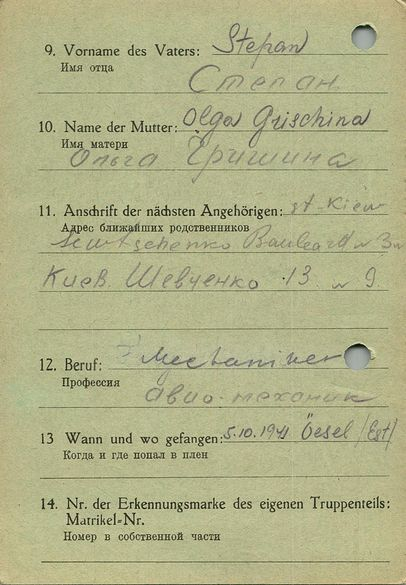 9. Vorname des Vaters: Stepan
Имя отца
Степан
10. Name der Mutter: Olga Grischina
Имя матери
Ольга Гришина
11. Anschrift der nächsten Angehörigen: st. Kiew
Адрес ближайших родственников
Boulvard N 3
Киев. Шевченко 13 N 9.
12. Beruf: Mechaniker
Профессия
авио-механик
13 Wann und wo gefangen: 5.10.1941 Öesel (Est)
Когда и где попал в плен
14. Nr. der Erkennungsmarke des eigenen Truppenteils:
Matrikel=Nr.
Номер в собственной части